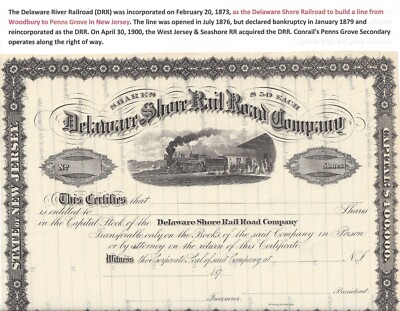 The Delaware River Railroad (DRR) was incorporated on February 20, 1873, as the Delaware Shore Railroad to build a line from
Woodbury to Penns Grove in New Jersey. The line was opened in July 1876, but declared bankruptcy in January 1879 and
reincorporated as the DRR. On April 30, 1900, the West Jersey & Seashore RR acquired the DRR. Conrail's Penns Grove Secondary
operates along the right of way.
SHARES $50 EACH
Delaware Shore Rail Road Company
No
Shares
STATE OF NEW JERSEY
CAPITAL $400,000
This Certifies that
is entitled to Shares
in the Capital Stock of the Delaware Shore Rail Road Company
Transferable only on the Books of the said Company in Person
or by attorney on the return of this Certificate.
Witness the Corporate Seal of said Company at N.J
187
President.
Treasurer.